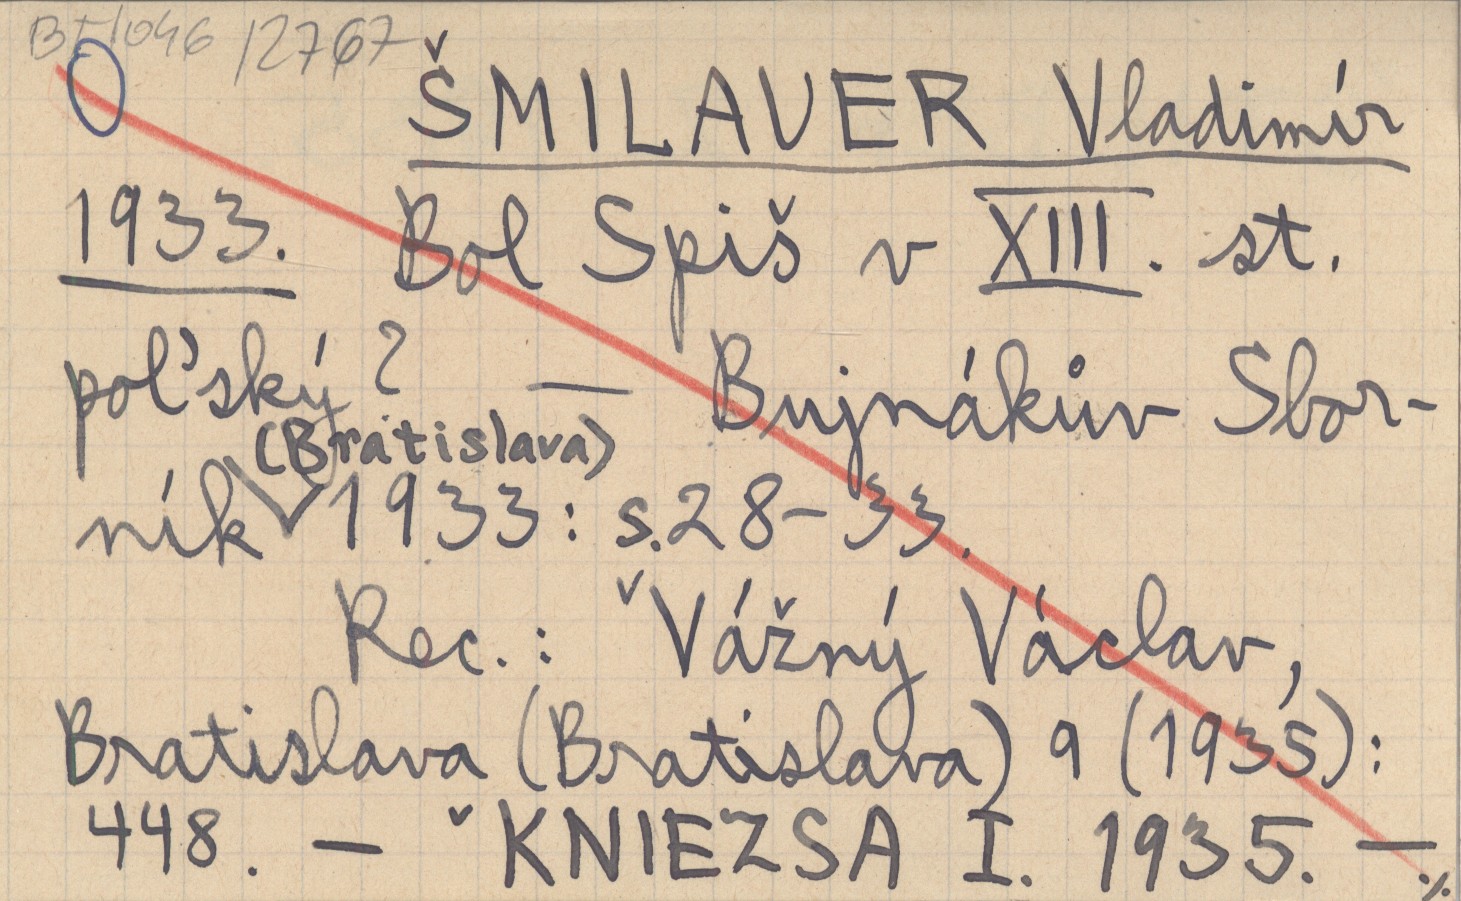 BŦ1046 /2767
ŠMILAUER Vladimír
1933. Bol Spiš v XIII. st.
poľský? — Bujnákův Sbor-
(Bratislava)
ník 1933: s.28-33.
Rec.: ˇVážný Václav,
Bratislava (Bratislava) 9 (1935):
448. — ˇKNIEZSA I. 1935. —
./.